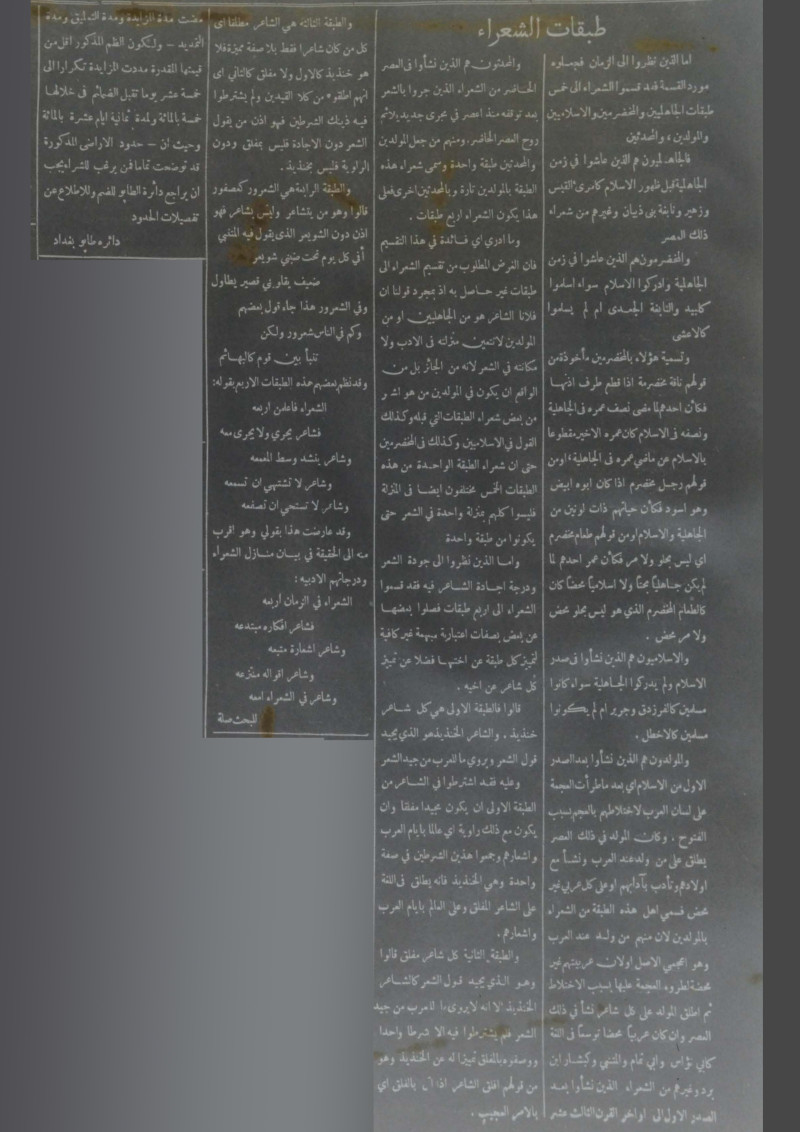 طبقات الشعراء
اما الذين نظروا الى الزمان فجعلوه
مورد القسمة فقد قسموا الشعراء الى خمس
طبقات الجاهليين والمخضرمين والاسلاميين
والمولدين، والمحدثين
فالجاهليون هم الذين عاشوا في زمن
الجاهلية قبل ظهور الاسلام كامرىء القيس
وزهير ونابغة بنى ذبيان وغيرهم من شعراء
ذلك العصر
والمخضرمون هم الذين عاشوا في زمن
الجاهلية وادركوا الاسلام سواء اسلموا
كلبيد والنابغة الجعدى ام لم يسلموا
كالاعشى
وتسمية هؤلاء بالمخضرمين مأخوذة من
قولهم ناقة مخضرمة اذا قطع طرف اذنها
فكأن احدهم لما مضى نصف عمره فى الجاهلية
ونصفه فى الاسلام كان عمره الاخير مقطوعا
بالاسلام عن ماضي عمره فى الجاهلية، اومن
قولهم رجل مخضرم اذا كان ابوه ابيض
وهو اسود فكأن حياتهم ذات لونين من
الجاهلية والاسلام اومن قولهم طعام مخضرم
اي ليس بحلو ولا مر فكأن عمر احدهم لما
لم يكن جاهليًا محتًا ولا اسلاميًا محضًا كان
كالطعام المخضرم الذي هو ليس بحلو محض
ولا مر محض .
والاسلاميون هم الذين نشأوا فى صدر
الاسلام ولم يدركوا الجاهلية سواء كانوا
مسلمين كالفرزدق وجرير ام لم يكونوا
مسلمين كالاخطل .
والمولدون هم الذين نشأوا بعد الصدر
الاول من الاسلام اي بعد ماطرأت العجمة
على لسان العرب لاختلاطهم بالعجم بسبب
الفتوح . وكان المولد في ذلك العصر
يطلق على من ولد عند العرب ونشأ مع
اولادهم وتأدب بآدابهم او على كل عربي غير
محض فسمي اهل هذه الطبقة من الشعراء
بالمولدين لان منهم من ولد عند العرب
وهو اعجمي الاصل اولان عربيتهم غير
محضة لطروء العجمة عليها بسبب الاختلاط
ثم اطلق المولد على كل شاعر نشأ في ذلك
العصر وان كان عربيًا محضا توسعًا فى اللغة
كابي نؤاس وابي تمام والمتنبي وكبشار ابن
برد وغيرهم من الشعراء الذين نشأوا بعد
الصدر الاول الى اواخر القرن الثالث عشر
والمحدثون هم الذين نشأوا فى العصر
الحاضر من الشعراء الذين جروا بالشعر
بعد توقفه منذ اعصر في مجرى جديد يلائم
روح العصر الحاضر. ومنهم من جعل المولدين
والمحدثين طبقة واحدة وسمى شعراء هذه
الطبقة بالمولدين تارة وبالمحدثين اخرى فعلى
هذا يكون الشعراء اربع طبقات .
وما ادري اي فائدة في هذا التقسيم
فان الغرض المطلوب من تقسيم الشعراء الى
طبقات غير حاصل به اذ بمجرد قولنا ان
فلانا الشاعر هو من الجاهليين او من
المولدين لا تتعين منزلته فى الادب ولا
مكانته في الشعر لانه من الجائز بل من
الواقع ان يكون في المولدين من هو اشعر
من بعض شعراء الطبقات التي قبله وكذلك
القول في الاسلاميين وكذلك فى المخضرمين
حتى ان شعراء الطبقة الواحدة من هذه
الطبقات الخمس مختلفون ايضا فى المنزلة
فليسوا كلهم بمنزلة واحدة في الشعر حتى
يكونوا من طبقة واحدة
واما الذين نظروا الى جودة الشعر
ودرجة اجادة الشاعر فيه فقد قسموا
الشعراء الى اربع طبقات فصلوا بعضها
عن بعض بصفات اعتبارية مبهمة غير كافية
لتمييز كل طبقة عن اختها فضلا عن تمييز
كل شاعر عن اخيه .
قالوا فالطبقة الاولى هي كل شاعر
خنذيذ . والشاعر الخنذيذ هو الذي يجيد
قول الشعر ويروي ما للعرب من جيد الشعر
وعليه فقد اشترطوا في الشاعر من
الطبقة الاولى ان يكون مجيدا مفلقا وان
يكون مع ذلك راوية اي عالما بايام العرب
واشعارهم وجمعوا هذين الشرطين في صفة
واحدة وهي الخنذيذ فانه يطلق فى اللغة
على الشاعر المفلق وعلى العالم بايام العرب
واشعارهم .
والطبقة الثانية كل شاعر مفلق قالوا
وهو الذي يجيد قول الشعر كالشاعر
الخنذيذ الا انه لا يروى ما للعرب من جيد
الشعر فلم يشترطوا فيه الا شرطا واحدا
ووصفوه بالمفلق تمييزا له عن الخنذيذ وهو
من قولهم افلق الشاعر اذا اتى بالفلق اي
بالامر العجيب .
والطبقة الثالثة هي الشاعر مطلقا اى
كل من كان شاعرا فقط بلا صفة مميزة فلا
هو خنذيذ كالاول ولا مفلق كالثاني اى
انهم اطلقوه من كلا القيدين ولم يشترطوا
فيه ذينك الشرطين فهو اذن من يقول
الشعر دون الاجادة فليس بمفلق ودون
الراوية فليس بخنذيذ .
والطبقة الرابعة هي الشعرور كعصفور
قالوا وهو من يتشاعر وليس بشاعر فهو
اذن دون الشويعر الذى يقول فيه المتنبي
أفي كل يوم تحت ضبني شويعر
ضعيف يقاويني قصير يطاول
وفي الشعرور هذا جاء قول بعضهم
وكم في الناس شعرور ولكن
تنبأ بين قوم كالبهائم
وقد نظم بعضهم هذه الطبقات الاربع بقوله:
الشعراء فاعلمن اربعه
فشاعر يجري ولا يجرى معه
وشاعر ينشد وسط المعمعه
وشاعر لا تشتهي ان تسمعه
وشاعر لا تستحي ان تصفعه
وقد عارضت هذا بقولي وهو اقرب
منه الى الحقيقة في بيان منازل الشعراء
ودرجاتهم الادبيه :
الشعراء في الزمان أربعه
فشاعر افكاره مبتدعه
وشاعر اشعاره متبعه
وشاعر اقواله منتزعه
وشاعر في الشعراء امعه
للبحث صلة
مضت مدة الزايدة ومدة التعليق ومدة
التمديد – ولكون الظم المذكور اقل من
قيمتها المقدرة مددت المزايدة تكرارا الى
خمسة عشر يوما تقبل الضمائم فى خلالها
خمسة بالمائة ولمدة ثمانية ايام عشرة بالمائة
وحيث ان – حدود الاراضى المذكورة
قد توضحت تماما فمن يرغب للشراء يجب
ان يراجع دائرة الطابو للضم وللاطلاع عن
تفصيلات الحدود
دائره طابو بغداد